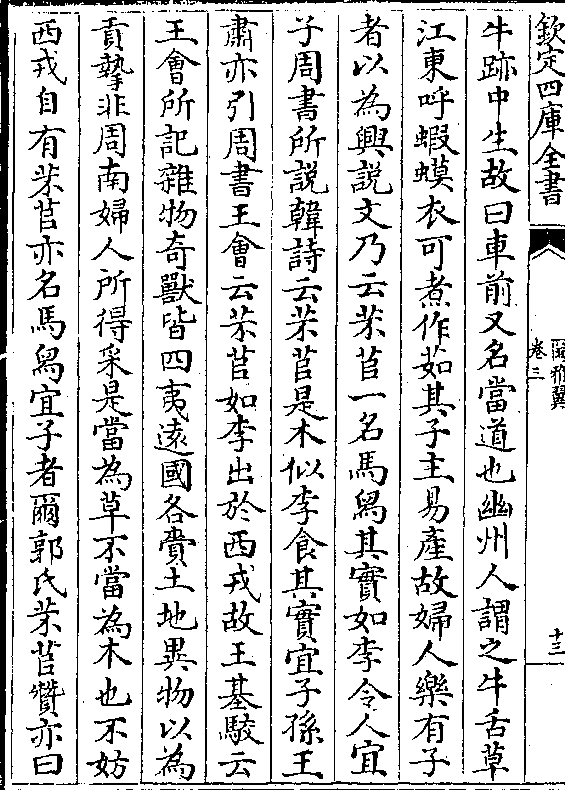 欽定四庫全書
爾雅翼
卷三
十三
牛跡中生故曰車前又名當道也幽州人謂之牛舌草
江東呼蝦蟆衣可煮作茹其子主易產故婦人樂有子
者以為興說文乃云芣苢一名馬舄其實如李令人宜
子周書所說韓詩云芣苢是木似李食其實宜子孫王
肅亦引周書王會云芣苢如李出於西戎故王基駮云
王會所記雜物奇獸皆四夷遠國各賫土地異物以為
貢贄非周南婦人所得采是當為草不當為木也不妨
西戎自有芣苢亦名馬舄宜子者爾郭氏芣苢贊亦曰